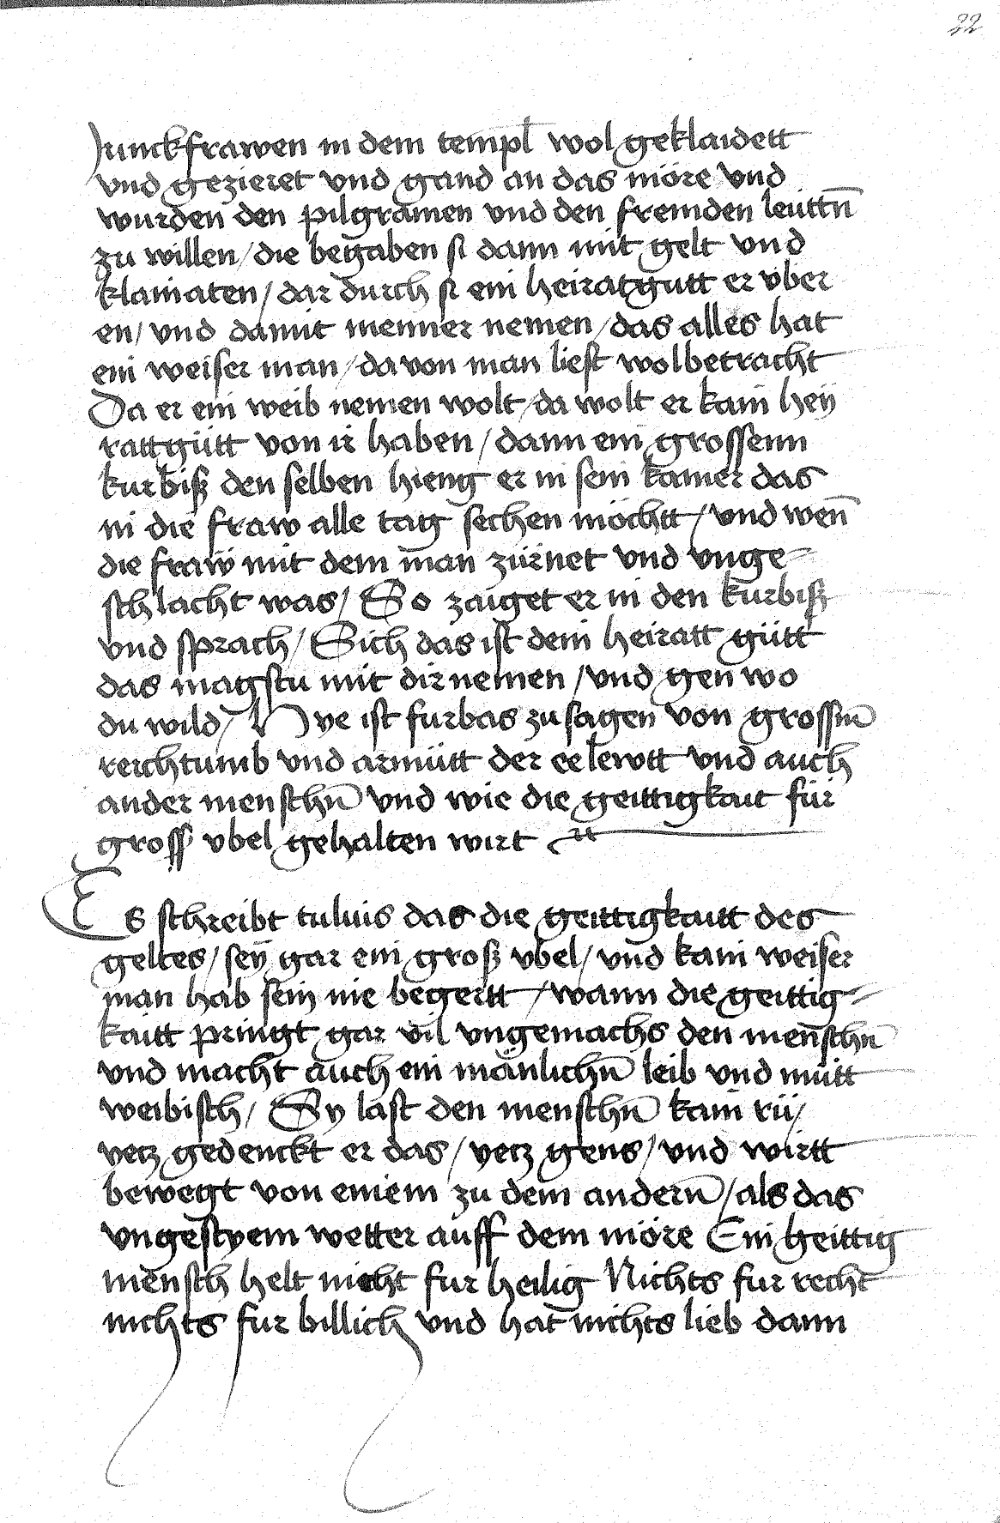 22
Junckfrawen in dem templ wol geklaidett
vnd gezieret vnd gand an das möre vnd
wurden den pilgramen vnd den fremden leuttn̄
zu willen / die begaben si dann mit gelt vnd
klainaten / dar durch si ein heiratgutt er vber
en / vnd damit menner nemen / das alles hat
ein weiser man / da von man liest wol betracht
Da er ein weib nemen wolt / da wolt er kain hey
rattgütt von ir haben / dann ein grossenn
kurbiß den selben hieng er in sein kamer das
in die fraw alle tag sechen möchtt / vnd wen̄
die fraw mit dem man zürnet vnd vnge-
schlacht was / So zaiget er in den kurbiß
vnd sprach / Sich das ist dein heiratt gütt
das magstu mit dir nemen / vnd gen wo
du wild / Hye ist furbas zu sagen von grossm̄
reichtumb vnd armütt der ee lewtt vnd auch
ander menschn̄ vnd wie die geittigkait für
gross vbel gehalten wirt
Es schreibt tulius das die geittigkaitt des
geltes / sey gar ein groß vbel / vnd kain weiser
man hab sein nie begertt / wann die geittig-
kaitt pringt gar vil vngemachs den men̄schn̄
vnd macht auch ein mänlichn̄ leib vnd mütt
weibisch / Sy last den menschn̄ kain rü /
yetz gedenckt er das / yetz gens / vnd wirtt
bewegt von einem zu dem andern̄ / als das
vngestyem wetter auff dem möre Ein geittig
mensch helt nicht fur heilig Nichts fur recht
nichts fur billich vnd hat nichts lieb dann